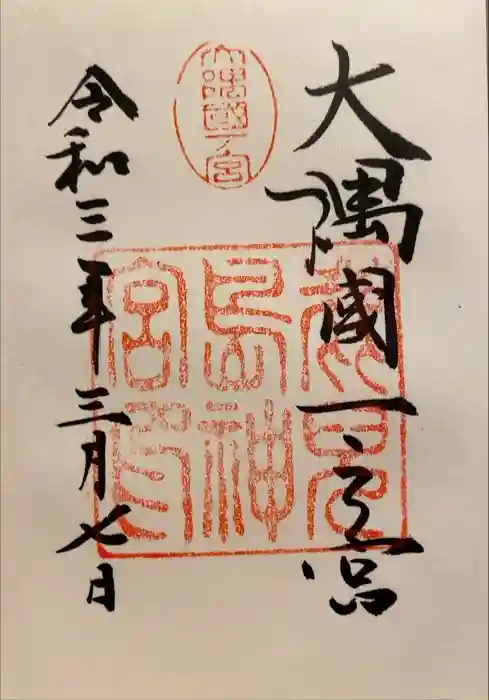 大隅國一之宮
大隅國一ノ宮
鹿児島神宮印
令和三年三月七日